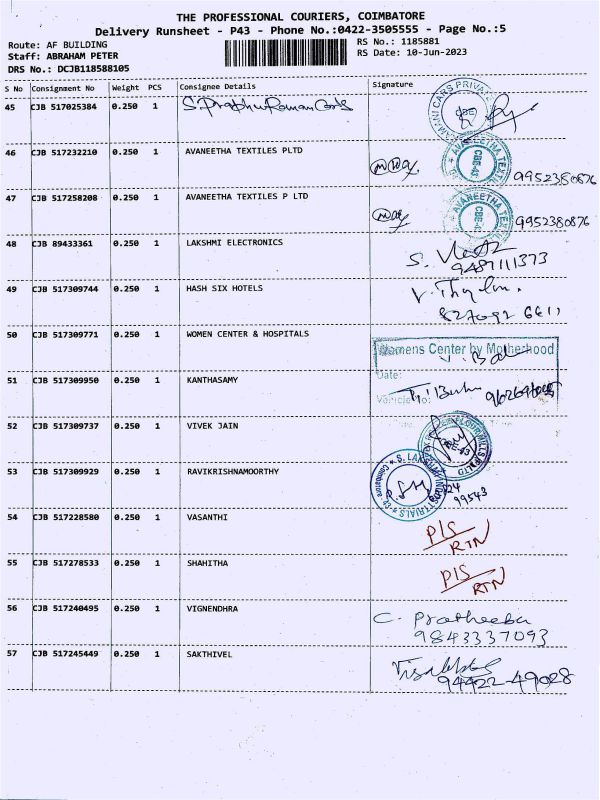 THE PROFESSIONAL COURIERS, COIMBATORE
Delivery Runsheet - P43 - Phone No.:0422-3505555 - Page No.:5
Route: AF BUILDING
RS No.: 1185881
Staff: ABRAHAM PETER
RS Date: 10-Jun-2023
DRS No.: DCJB118588105
S No Consignment No Weight PCS Consignee Details Signature
45 CJB 517025384 0.250 1 S. Prabhu Raman Cars
CARS PRIVA
CBE
46 CJB 517232210 0.250 1 AVANEETHA TEXTILES PLTD
AVANEETHA TEXT
CBE-43
9952380876
47 CJB 517258208 0.250 1 AVANEETHA TEXTILES P LTD
AVANEETHA TEXT
CBE-43
9952380876
48 CJB 89433361 0.250 1 LAKSHMI ELECTRONICS
9487111373
49 CJB 517309744 0.250 1 HASH SIX HOTELS
827092 6611
50 CJB 517309771 0.250 1 WOMEN CENTER & HOSPITALS
Womens Center by Motherhood
Date:
51 CJB 517309950 0.250 1 KANTHASAMY
Vehicle No:
52 CJB 517309737 0.250 1 VIVEK JAIN
FLOUR MILLS P LTD
53 CJB 517309929 0.250 1 RAVIKRISHNAMOORTHY
S. LAKSHMI INDUSTRIALS
Coimbatore
99543
54 CJB 517228580 0.250 1 VASANTHI
P/S
RTN
55 CJB 517278533 0.250 1 SHAHITHA
P/S
RTN
56 CJB 517240495 0.250 1 VIGNENDHRA
C. Pratheeba
9843337093
57 CJB 517245449 0.250 1 SAKTHIVEL
94422-49028